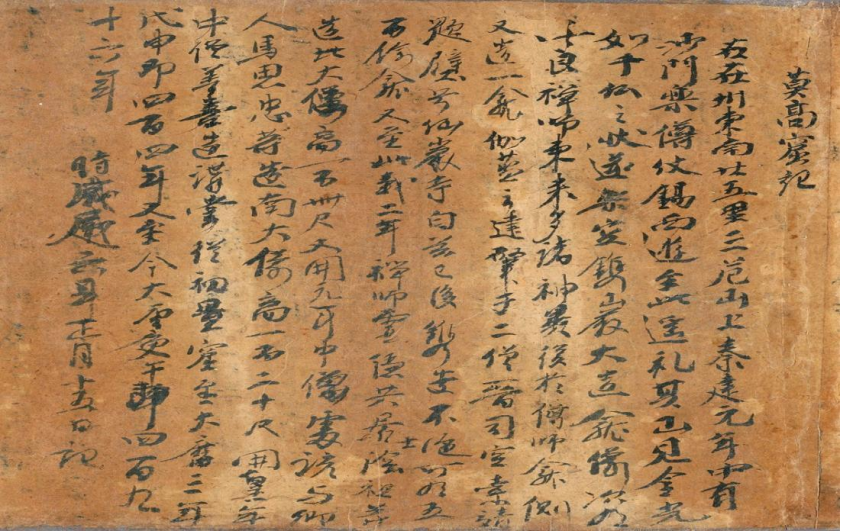 莫高窟記
右在州東南廿五里三危山上秦建元年中有
沙門樂僔仗錫西遊至此遥礼其山見金光
如千仏之狀遂架空鐫巖大造龕像次有
法良禪師東來多諸神異復於僔師龕側
又造一龕伽藍之建肇于二僧晉司空索靖
題壁号仙巖寺自茲已後鐫造不絕可有五
百餘龕又至延載二年禪師靈隱共居士陰祖等
造北大像高一百卌尺又開元年中僧處諺与鄉
人馬思忠等造南大像高一百二十尺開皇年
中僧善喜造講堂從初置窟至大曆三年
戊申即四百四年又至今大唐庚午即四百九
十六年
時咸通六年正月十五日記